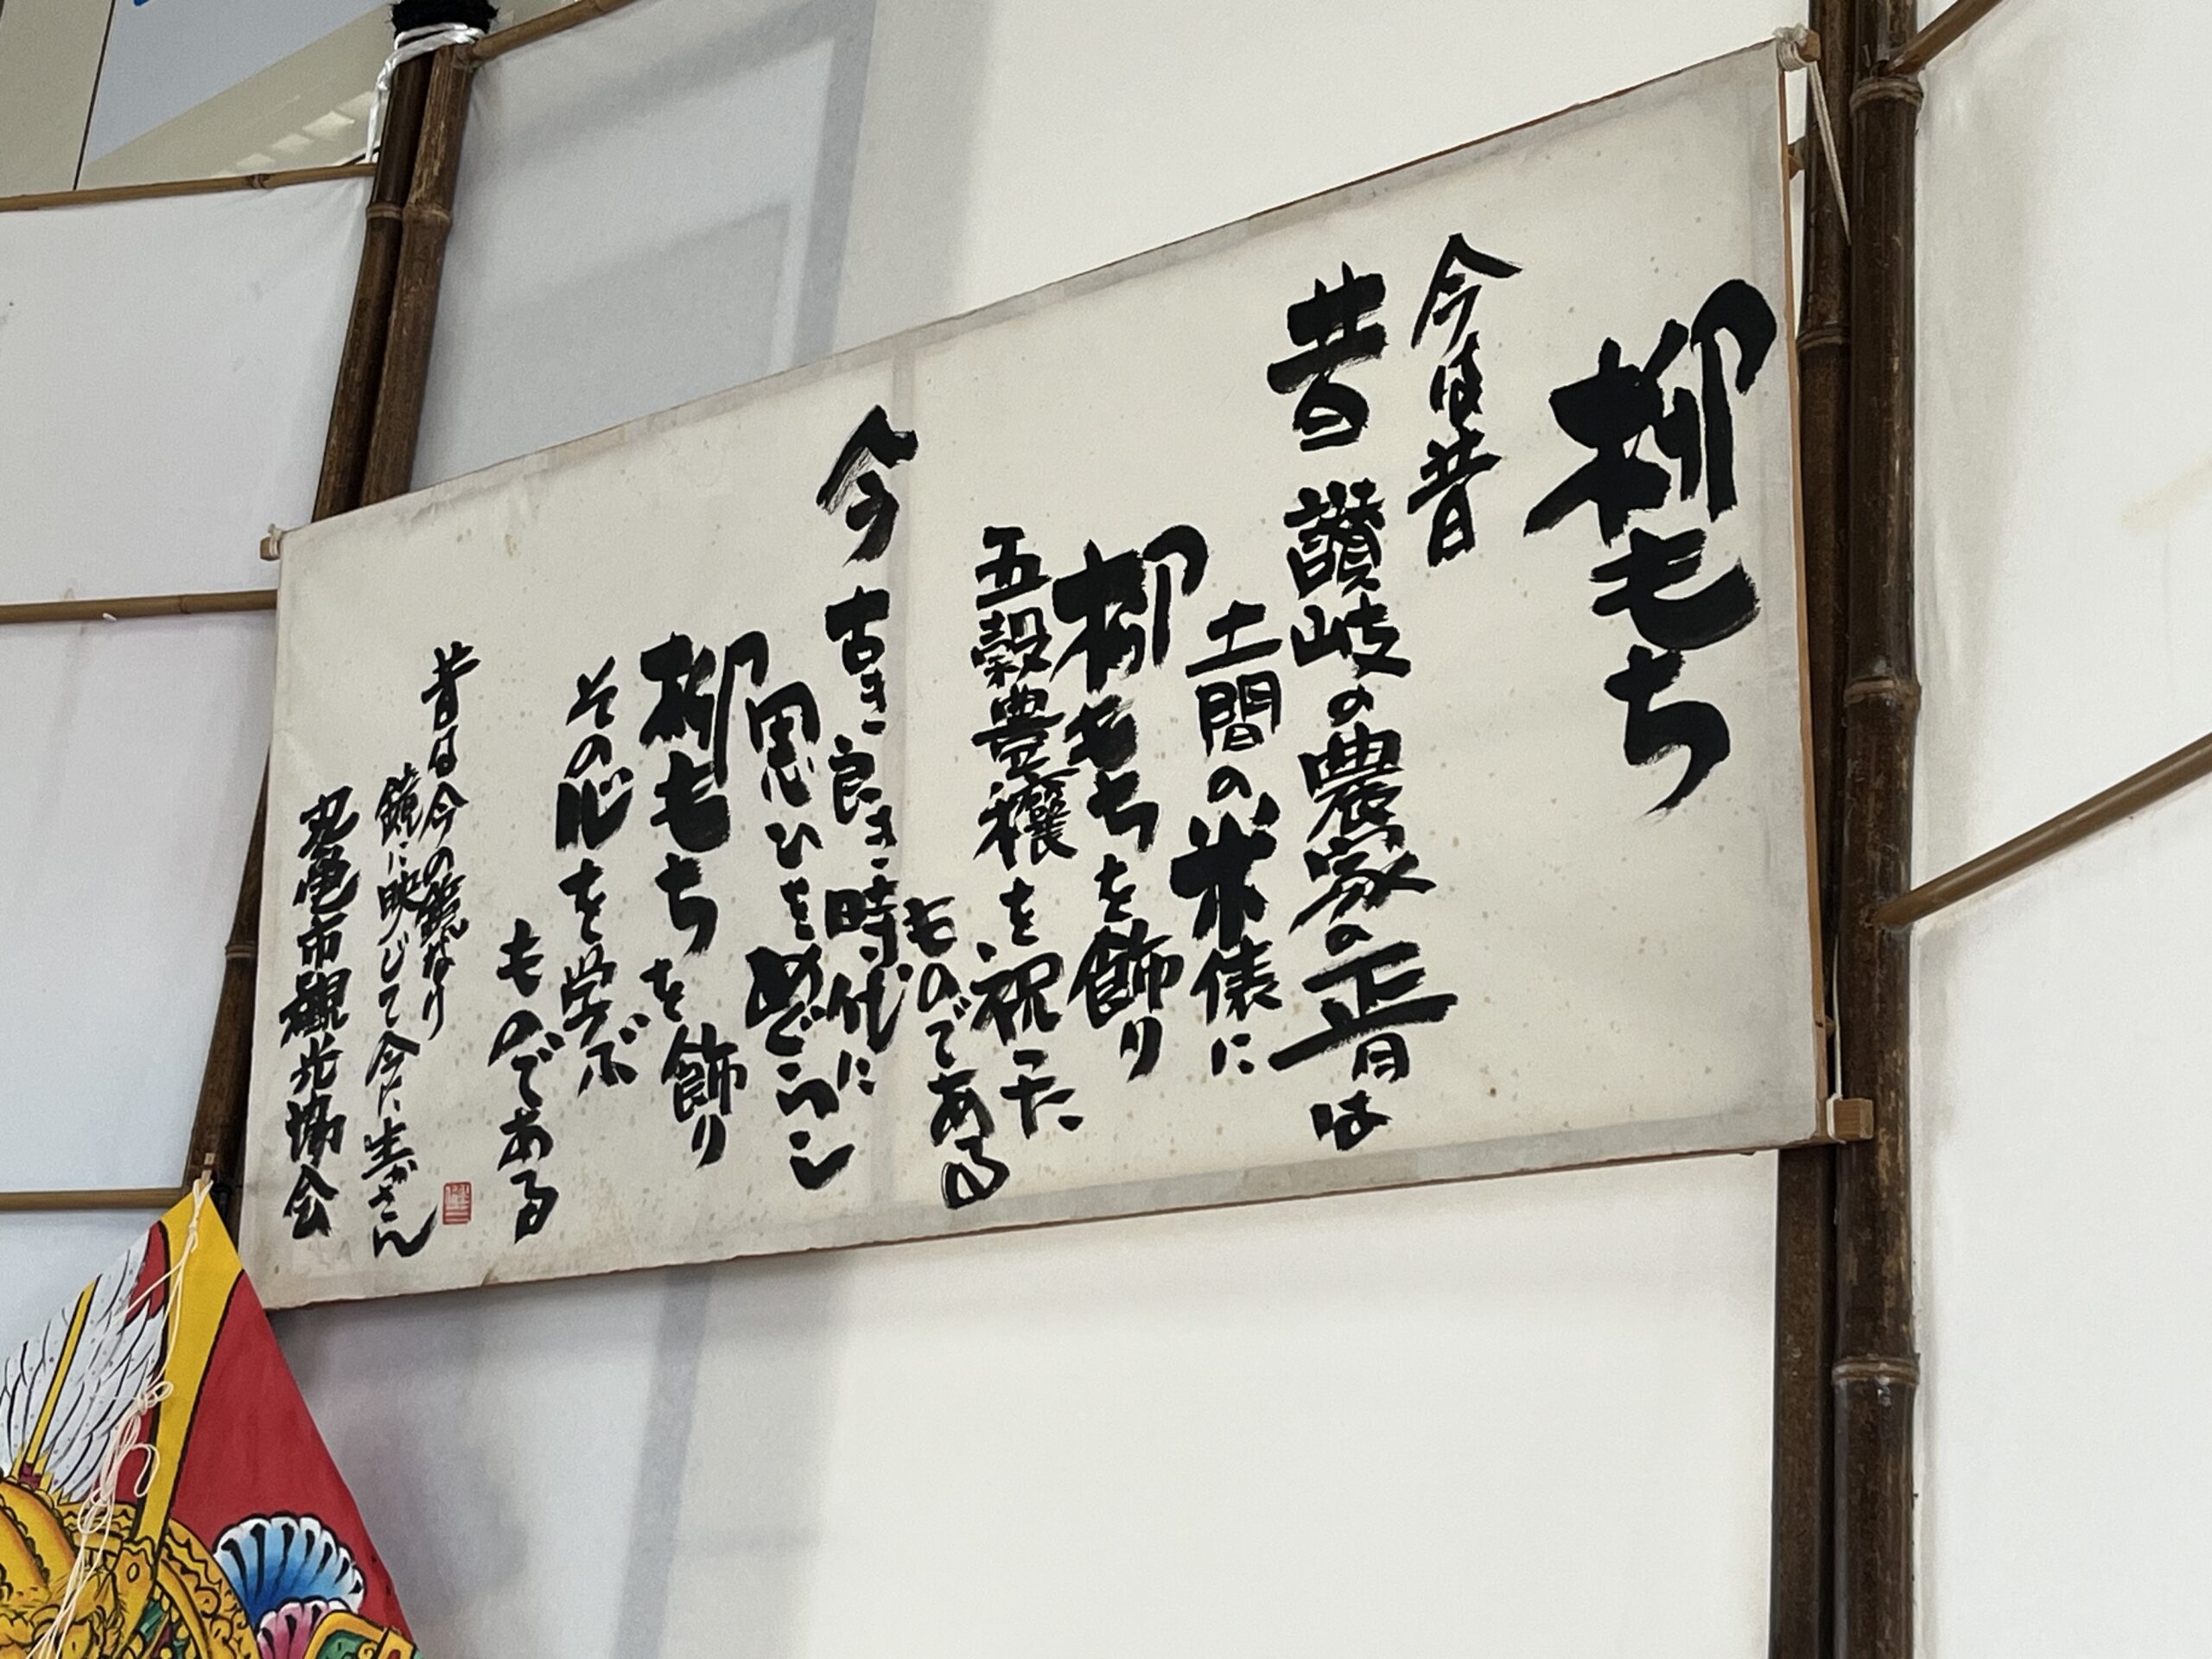 柳もち
今は昔
昔の
讃岐の農家の正月は
土間の米俵に
柳もちを飾り
五穀豊穣を祝った
ものである
今
古き良き時代に
思ひをめぐらし
柳もちを飾り
その心を学ぶ
ものである
昔は今の鏡なり
鏡に映じて今に生かさん
丸亀市観光協会